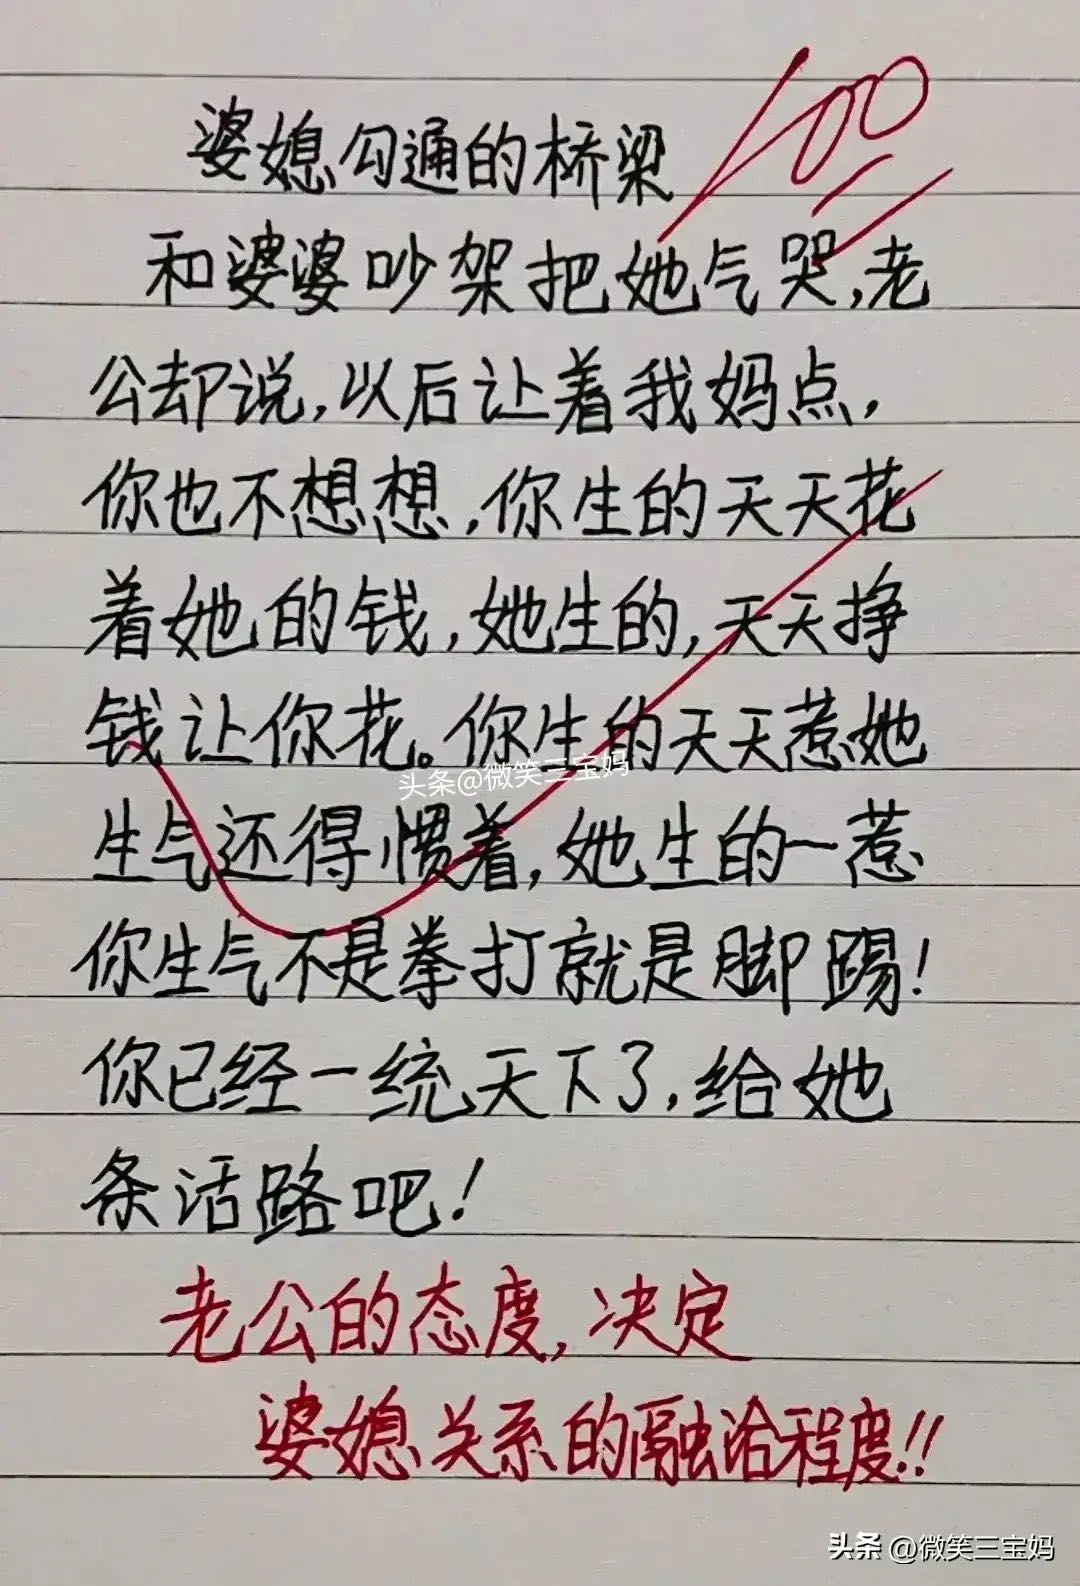 婆媳勾通的桥梁
100
和婆婆吵架把她气哭,老
公却说,以后让着我妈点,
你也不想想,你生的天天花
着她的钱,她生的,天天挣
钱让你花。你生的天天惹她
头条@微笑三宝妈
生气还得惯着,她生的一惹
你生气不是拳打就是脚踢!
你已经一统天下了,给她
条活路吧!
老公的态度,决定
婆媳关系的融洽程度!!
头条 @微笑三宝妈